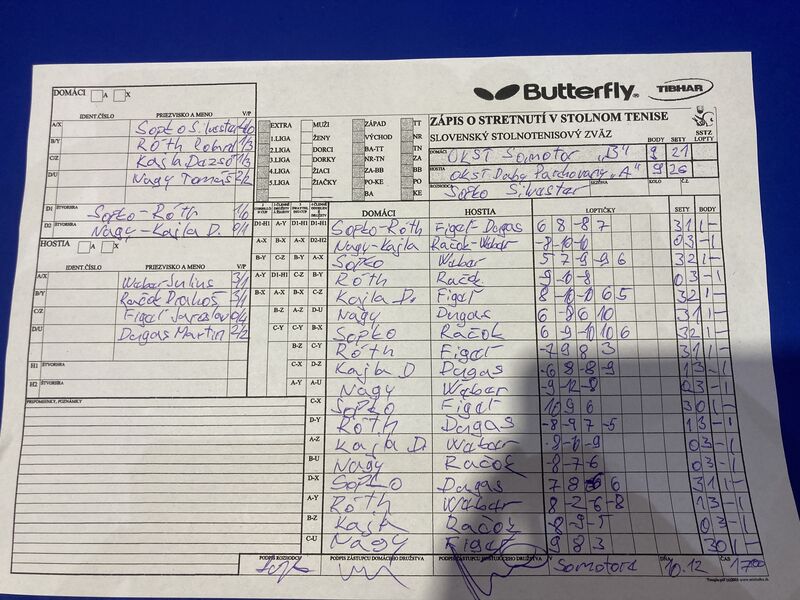 Butterfly
TIBHAR
DOMÁCI A X
IDENT.ČÍSLO PRIEZVISKO A MENO V/P
A/X Sopko Silvester 4/0
B/Y Róth Robert 1/3
C/Z Kajla Dazső 1/3
D/U Nagy Tomáš 2/2
D1 Sopko-Róth 1/0
D2 Nagy-Kajla D. 0/1
HOSTIA A X
IDENT.ČÍSLO PRIEZVISKO A MENO V/P
A/X Weber Július 3/1
B/Y Račok
C/Z Figeľ Jaroslav 0/4
D/U Dugas Martin 2/2
H1 ŠTVORHRA
H2 ŠTVORHRA
PRIPOMIENKY, POZNÁMKY
EXTRA MUŽI ZÁPAD TT
1.LIGA ŽENY VÝCHOD NR
2.LIGA DORCI BA-TT TN
3.LIGA DORKY NR-TN ZA
4.LIGA ŽIACI ZA-BB BB
5.LIGA ŽIAČKY PO-KE PO
BA KE
ZÁPIS O STRETNUTÍ V STOLNOM TENISE
SLOVENSKÝ STOLNOTENISOVÝ ZVÄZ
BODY SETY SSTZ LOPTY
DOMÁCI OKST Somotor "B" 9 21
HOSTIA "A" 9 26
ROZHODCA Sopko Silvester
KOLO Č.Z.
DOMÁCI HOSTIA LOPTIČKY SETY BODY
D1-H1 A-Y D1-H1 D1-H1 Sopko-Róth Figeľ-Dugas 6 8 -8 7 3 1 1 -
A-X B-X A-X D2-H2 Nagy-Kajla Račok-Weber -8 -10 -6 0 3 - 1
B-Y C-Y C-Z A-X Sopko Weber 5 7 -9 -9 6 3 2 1 -
A-Y D1-H1 C-Z B-Y Róth Račok -9 -10 -8 0 3 - 1
B-X A-X B-X C-Z Kajla D. Figeľ 8 -10 -10 6 5 3 2 1 -
B-Z A-Z D-U Nagy Dugas 6 -8 6 10 3 1 1 -
C-Y D-X B-X Sopko Račok 6 -9 -10 10 6 3 2 1 -
B-Z C-Y Róth Figeľ -7 9 8 3 3 1 1 -
C-X D-Z Kajla D Dugas -6 8 -8 -9 1 3 - 1
A-Y A-U Nagy Weber -9 -12 -8 0 3 - 1
C-X Sopko Figeľ 10 9 6 3 0 1 -
D-Y Róth Dugas -8 -9 7 -5 1 3 - 1
A-Z Kajla D. Weber -8 -10 -9 0 3 - 1
B-U Nagy Račok -8 -7 -6 0 3 - 1
D-X Sopko Dugas 3 1 1 -
A-Y Róth Weber 8 -2 -6 -8 1 3 - 1
B-Z Kajla Račok -8 -9 -5 0 3 - 1
C-U Nagy Figeľ 9 8 3 3 0 1 -
PODPIS ROZHODCU PODPIS ZÁSTUPCU DOMÁCEHO DRUŽSTVA PODPIS ZÁSTUPCU HOSŤUJÚCEHO DRUŽSTVA V Somotore DŇA 10.12 ČAS 17:00